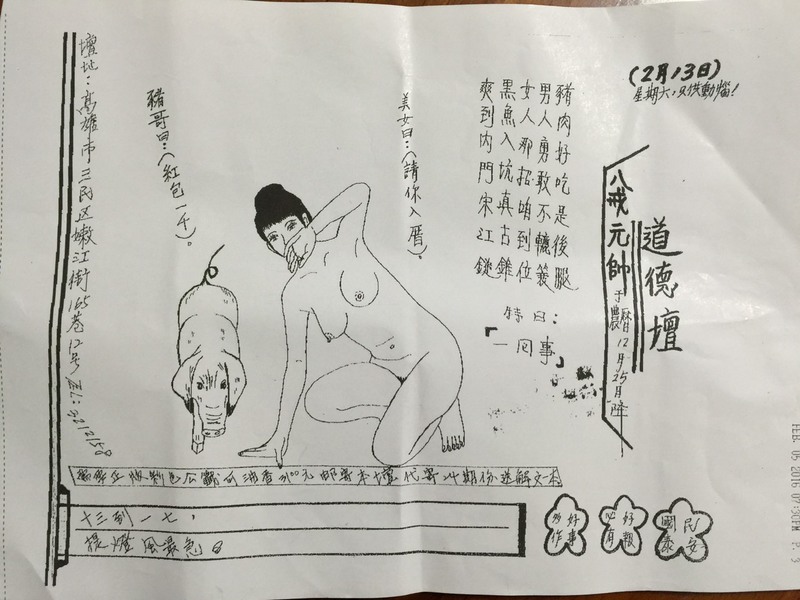 (2月13日)
星期六,只供動腦!
道德壇
八戒元帥
于農曆12月25日降
豬肉好吃是後腿
男人勇敢不轆義
女人那招咱到位
黑魚入坑真古錐
爽到內門宋江
特曰:
「一冏事」
美女曰:(請你入厝)。
豬哥曰:(紅包一千)。
壇址:高雄市三民区嫩江街165巷12号
十三到一七,
提燈風最
多作好事
心有好報
國泰民安
FEB 05 2016 07:30PM P.3